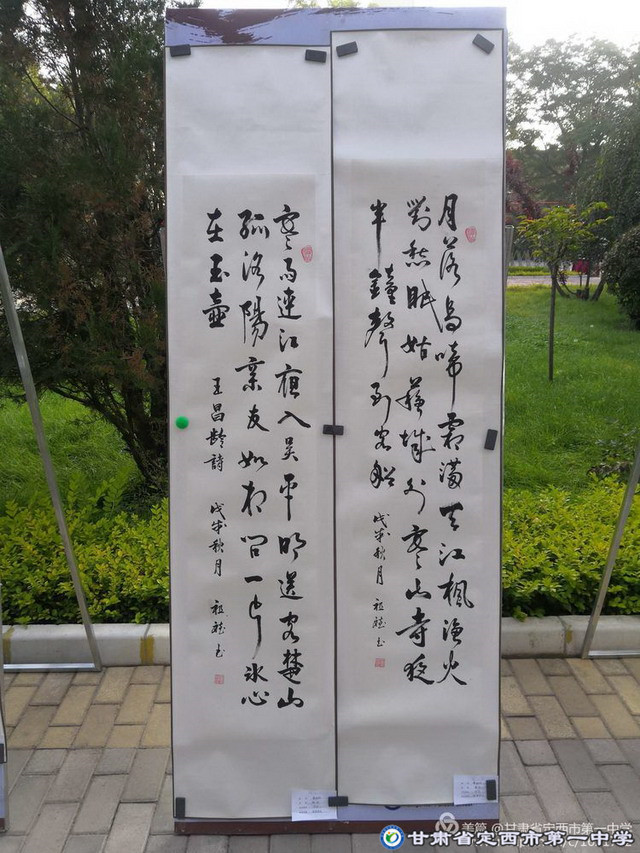 月落烏啼霜滿天江枫渔火
對愁眠姑蘇城外寒山寺夜
半鐘聲到客船 戊戌秋月 祖 书
寒雨連江夜入吴平明送客楚山
孤洛陽亲友如相问一片冰心
在玉壺 王昌龄詩 戊戌秋月 祖 书
美篇 @甘肃省定西市第一中学
甘肃省定西市第一中学